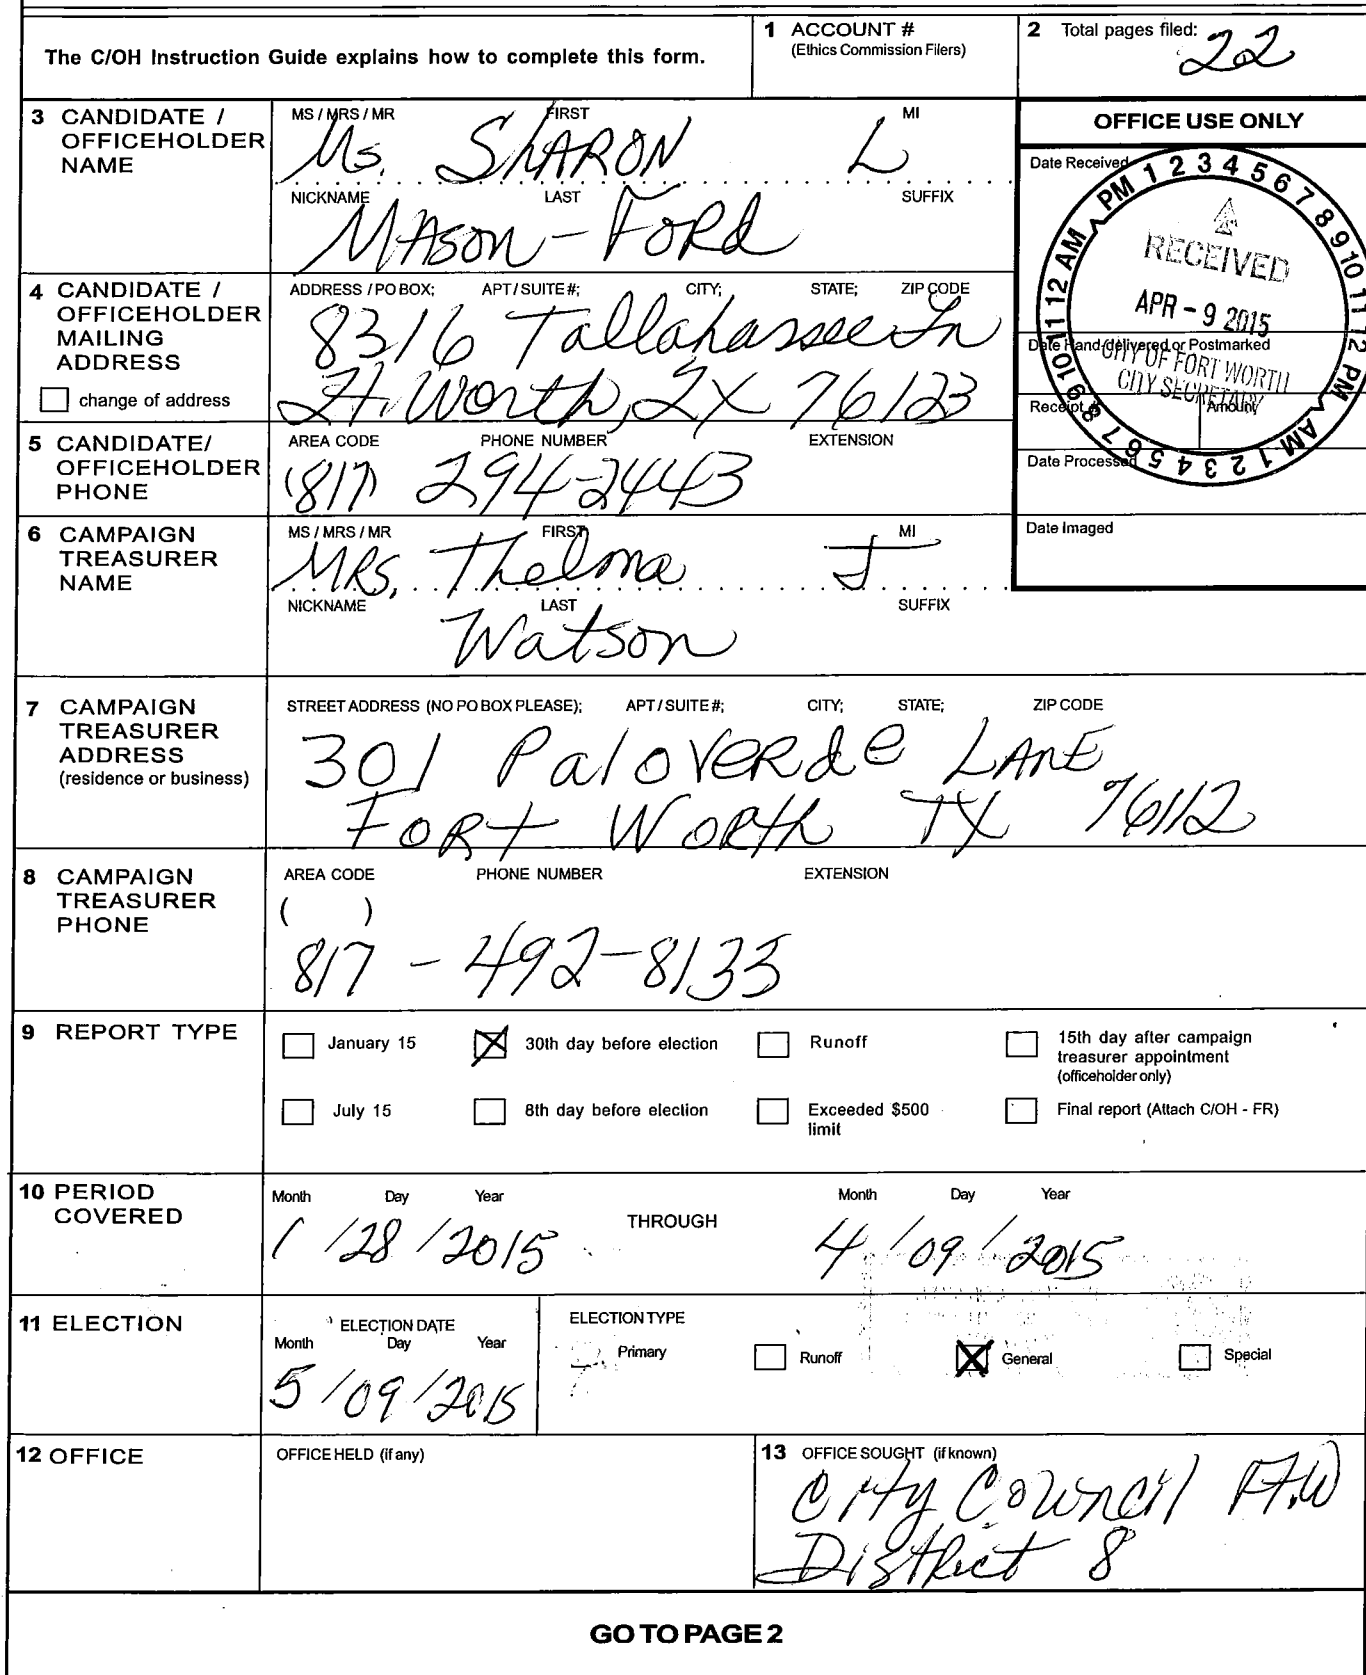 The C/OH Instruction Guide explains how to complete this form.
1 ACCOUNT #
(Ethics Commission Filers)
2 Total pages filed: 22
3 CANDIDATE / OFFICEHOLDER NAME
MS / MRS / MR FIRST MI
Ms. SHARON L
NICKNAME LAST SUFFIX
MASON-FORd
OFFICE USE ONLY
Date Received
PM 1 2 3 4 5 6 7 8 9 10 11 12 PM
AM 1 2 3 4 5 6 7 8 9 10 11 12 AM
RECEIVED
APR - 9 2015
CITY OF FORT WORTH
CITY SECRETARY
Date Hand-delivered or Postmarked
Receipt # Amount
Date Processed
Date Imaged
4 CANDIDATE / OFFICEHOLDER MAILING ADDRESS
change of address
ADDRESS / PO BOX; APT / SUITE #; CITY; STATE; ZIP CODE
8316 Tallahassee Ln
Ft. Worth, TX 76123
5 CANDIDATE/ OFFICEHOLDER PHONE
AREA CODE PHONE NUMBER EXTENSION
(817) 294-2443
6 CAMPAIGN TREASURER NAME
MS / MRS / MR FIRST MI
MRS. Thelma J
NICKNAME LAST SUFFIX
Watson
7 CAMPAIGN TREASURER ADDRESS
(residence or business)
STREET ADDRESS (NO PO BOX PLEASE); APT / SUITE #; CITY; STATE; ZIP CODE
301 PaloVERde LANE
FORT WORTH TX 76112
8 CAMPAIGN TREASURER PHONE
AREA CODE PHONE NUMBER EXTENSION
( )
817 - 492-8133
9 REPORT TYPE
January 15
30th day before election
Runoff
15th day after campaign treasurer appointment (officeholder only)
July 15
8th day before election
Exceeded $500 limit
Final report (Attach C/OH - FR)
10 PERIOD COVERED
Month Day Year
1 / 28 / 2015
THROUGH
Month Day Year
4 / 09 / 2015
11 ELECTION
ELECTION DATE
Month Day Year
5 / 09 / 2015
ELECTION TYPE
Primary
Runoff
General
Special
12 OFFICE
OFFICE HELD (if any)
13 OFFICE SOUGHT (if known)
City Council Ft.W
District 8
GO TO PAGE 2